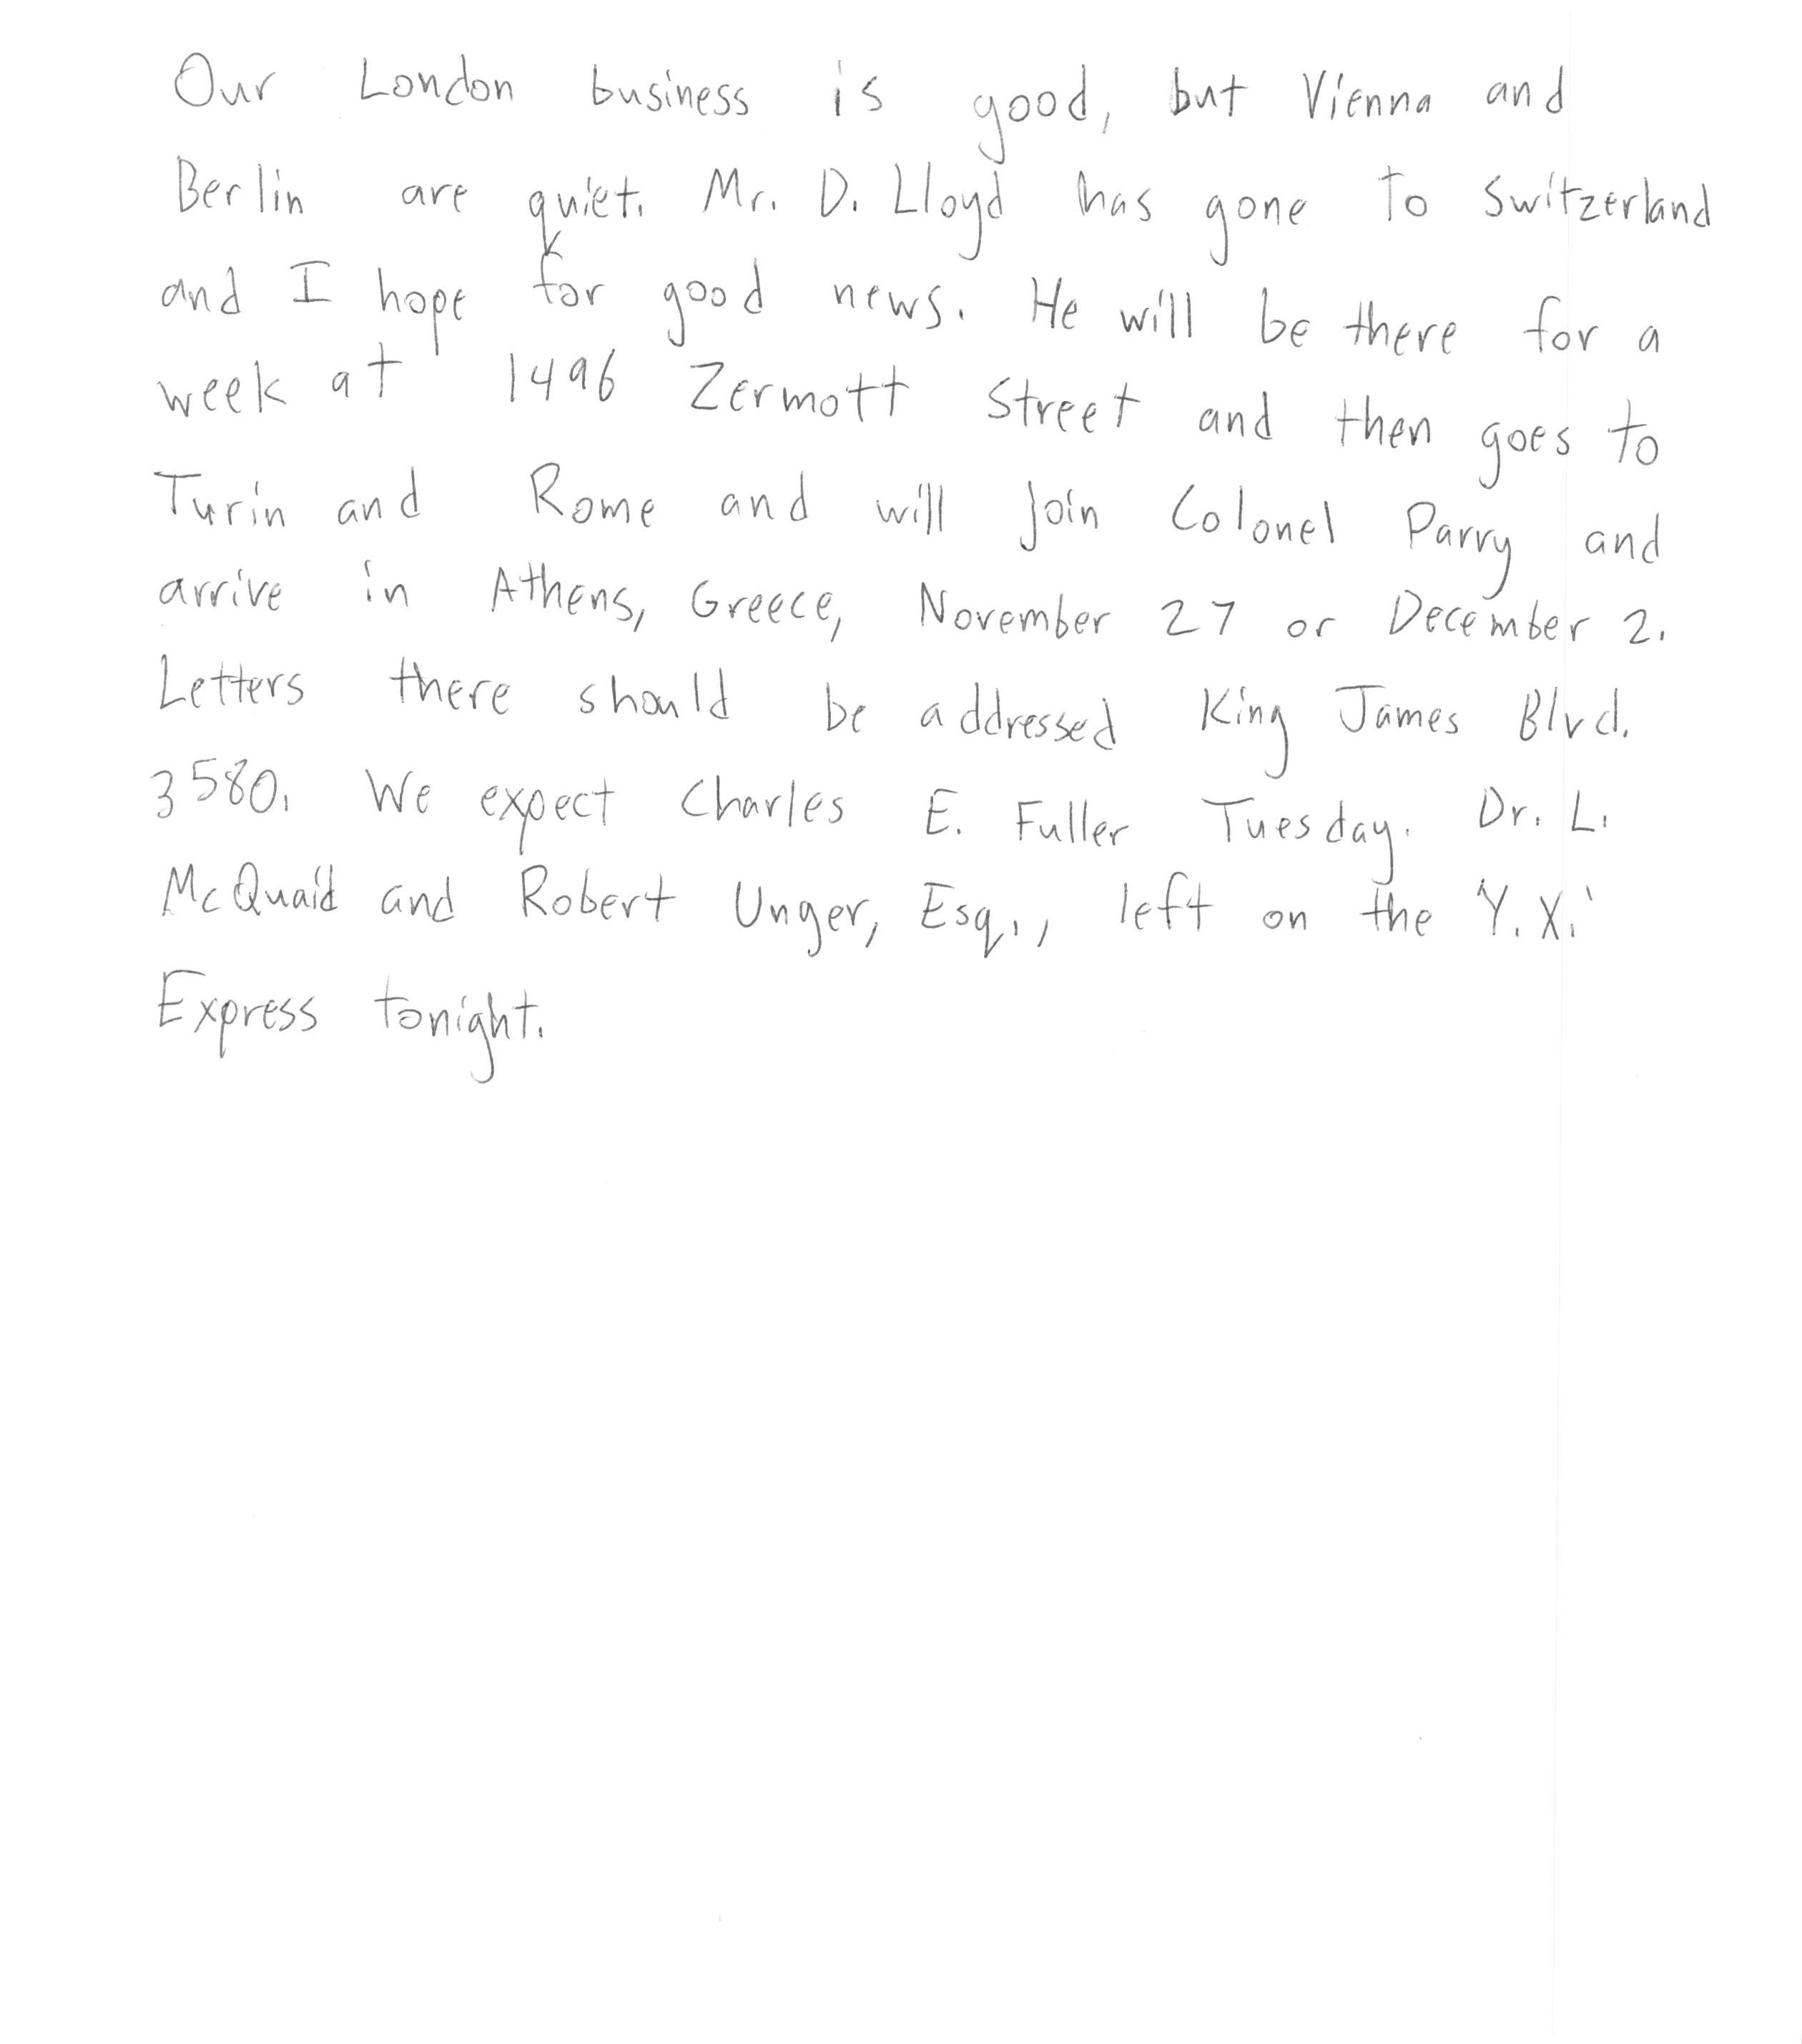 Our London business is good, but Vienna and
Berlin are quiet. Mr. D. Lloyd has gone to Switzerland
and I hope for good news. He will be there for a
week at 1496 Zermott Street and then goes to
Turin and Rome and will join Colonel Parry and
arrive in Athens, Greece, November 27 or December 2.
Letters there should be addressed King James Blvd.
3580. We expect Charles E. Fuller Tuesday. Dr. L.
McQuaid and Robert Unger, Esq., left on the 'Y.X.'
Express tonight.